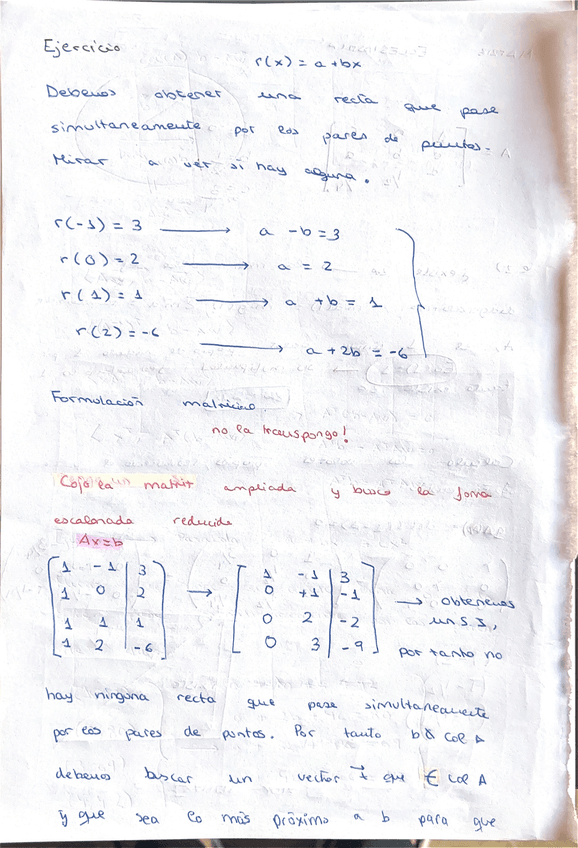 Ejercicio
r(x) = a + bx
Debemos obtener una recta que pase
simultaneamente por los pares de puntos.
Mirar a ver si hay alguna.
r(-1) = 3 ⟶ a - b = 3
r(0) = 2 ⟶ a = 2
r(1) = 1 ⟶ a + b = 1
r(2) = -6 ⟶ a + 2b = -6
Formulación matricial.
no la transpongo!
Cojo la matriz ampliada y busco la forma
escalonada reducida
Ax=b
1 -1 | 3 → 1 -1 | 3
1 0 | 2 0 +1 | -1 → obtenemos
1 1 | 1 0 2 | -2 un S.I.,
1 2 | -6 0 3 | -9 por tanto no
hay ninguna recta que pase simultaneamente
por los pares de puntos. Por tanto b ∉ Col A
debemos buscar un vector que ∈ Col A
y que sea lo más próximo a b para que